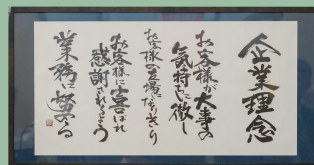 企業理念
お客様が大事の
気持ちに徹し
お客様の立場になりきり
お客様に喜ばれ
感謝されるよう
業務に遊める